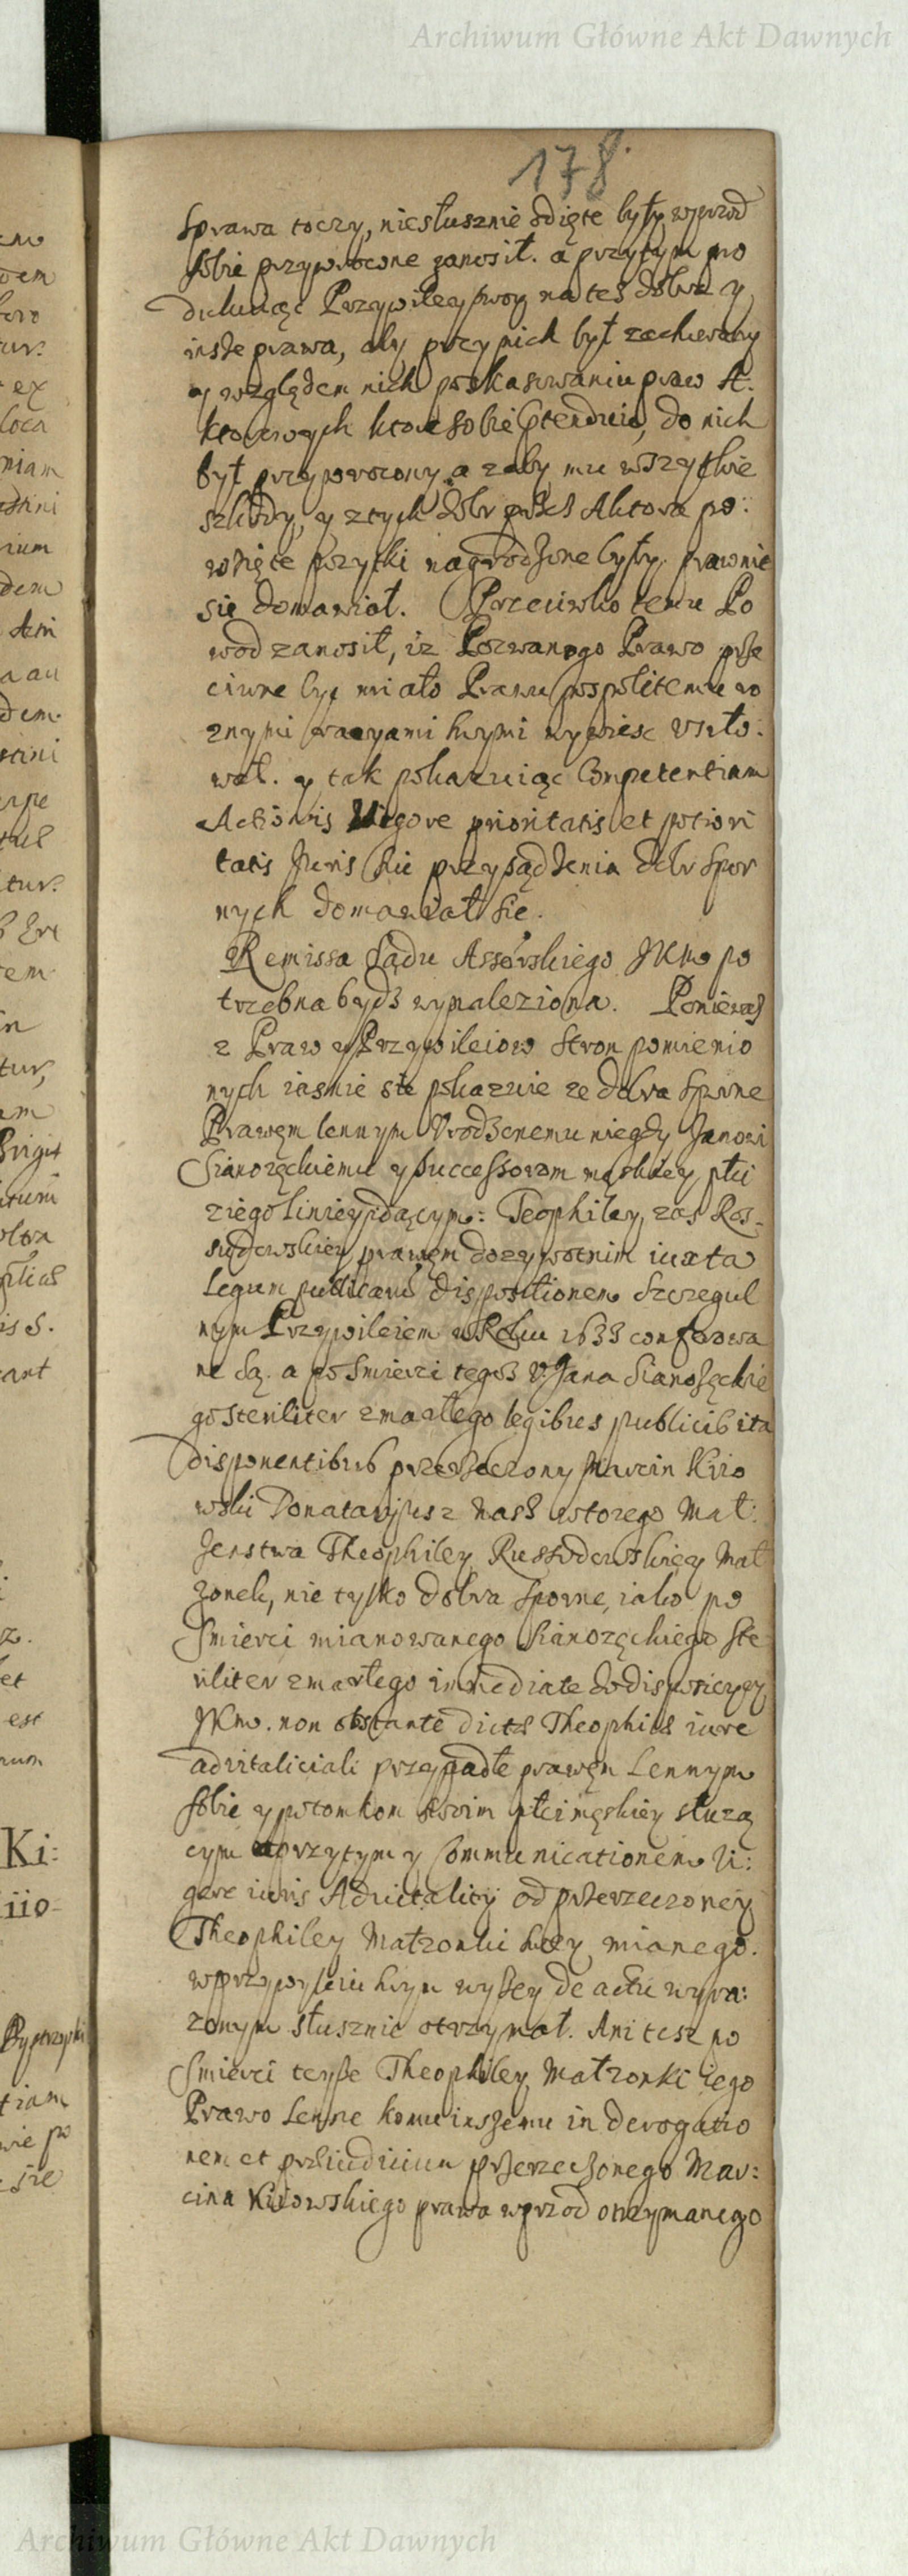 Archiwum Główne Akt Dawnych
178.
sprawa toczy, niesłusznie odięte były, wprzod
sobie przywrocone zanosił. a przytym pro
dukuiąc Przywiley swoy na też dobra y
insze prawa, aby przy nich był zachowany
y względem nich po skasowaniu praw A.
ktorowych ktore sobie ptenduie, do nich
był przywrocony, a zaby mu wszytkie
szkody, y z tych dobr przes Aktora po:
wzięte pozytki nagrodzone były, prawnie
się domawiał. Przeciwko temu Po
wod zanosił, iz Pozwanego Prawo prze
ciwne być miało Prawu pospolitemu ro
znymi racyami swymi wywiesc vsiło:
wał. y tak pokazuiąc Competentiam
Actionis Vigore prioritatis et potiori
tatis Juris sui przysądzenia dobr spor
nych domawiał się.
Remissa Sądu Assorskiego JKMo po
trzebna bydz wynaleziona. Poniewasz
z Praw y Przywileiow stron pomienio
nych iasnie sie pokazuie ze dobra sporne
Prawem lennym Vrodzonemu niegdy Janowi
Sianozęckiemu y successorom męskiey płci
z iego liniey idącym: Teophiley zas Ros-
sudowskiey prawem dozywotnim iuxta
Legum publicarum dispositionem szczegul
nym Przywileiem w Roku 1633 conferowa
ne są. a po smierci tegosz V. Jana Sianozęckie
go steriliter zmarłego legibus publicis ita
disponentibus przerzeczony Marcin Kiio
wski Donataryusz nasz wtorego Mał:
zenstwa Theophiley Russudowskiey Mał
zonek, nie tylko dobra sporne, iako po
smierci mianowanego Sianozęckiego ste
riliter zmarłego immediate do disposicyey
JKMo. non obstante dictæ Theophilæ iure
advitaliciali przypadłe prawem Lennym
sobie y potomkom swoim płci męskiey słuzą
cym a przytym y Communicationem vi:
gore iuris Advitalitij od przerzeczoney
Theophiley Małzonki swey mianego.
w przywileiu swym wyszey de actu wyra:
zonym słusznie otrzymał. Ani tesz po
smierci teysze Theophiley Małzonki iego
Prawo Lenne komu inszemu in derogatio
nem et præiudicium przerzeczonego Mar:
cina Kiiowskiego prawa wprzod otrzymanego
Archiwum Główne Akt Dawnych